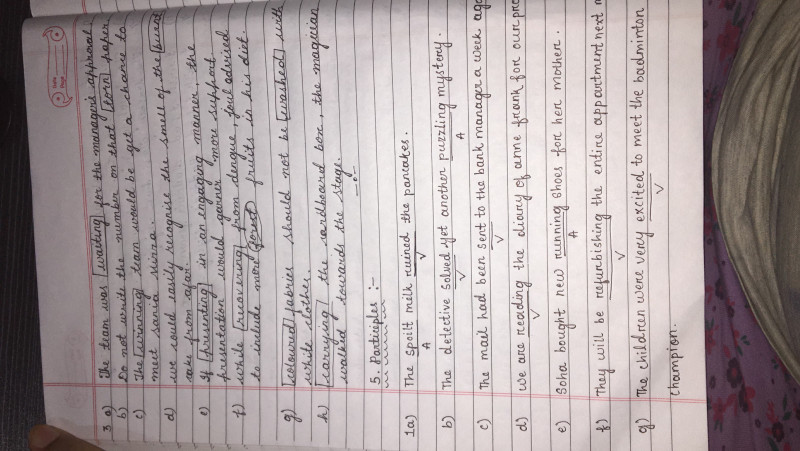 3 a) The team was waiting for the manager's approval.
b) Do not write the number on that torn paper
c) The winning team would be get a chance to
meet sania mirza.
d) we could easily recognise the smell of the burnt
from afar.
e) If presenting in an engaging manner, the
presentation would garner more support
f) while recovering from dengue, advised
to include more forest fruits in his diet.
g) coloured fabrics should not be washed with
white clothes.
h) carrying the cardboard box, the magician
walked towards the stage.
5. Participles :-
1a) The spoilt milk ruined the pancakes.
A V
b) The detective solved yet another puzzling mystery.
V A
c) The mail had been sent to the bank manager a week ago
V
d) we are reading the diary of anne frank for our pro
V
e) Soha bought new running shoes for her mother.
A
f) They will be refurbishing the entire appartment next m
V
g) The children were very excited to meet the badminton
V
Champion.